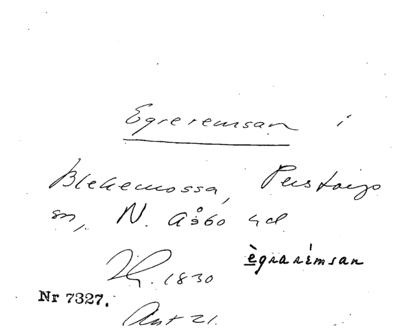 Egreremsan i
Blekemossa, Perstorps
sn, N. Åsbo hd.
1830 ègrarèmsan
Nr 7327.
Ant 21.